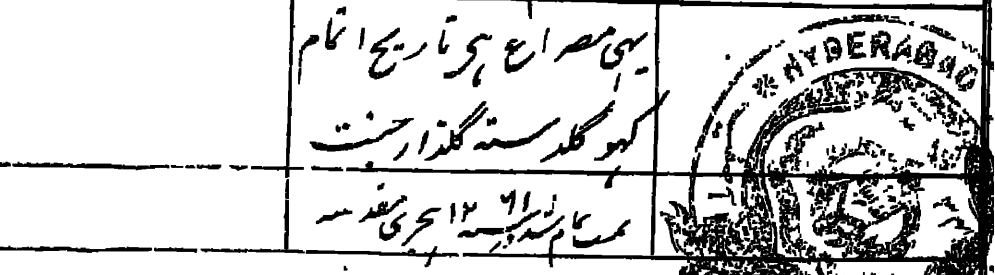 یہی مصراع ہی تاریخ اتمام
کہو گلدستہ گلذار جنت
تمت تمام شد ۱۲۶۱ ہجری مقدسہ
HYDERABAD